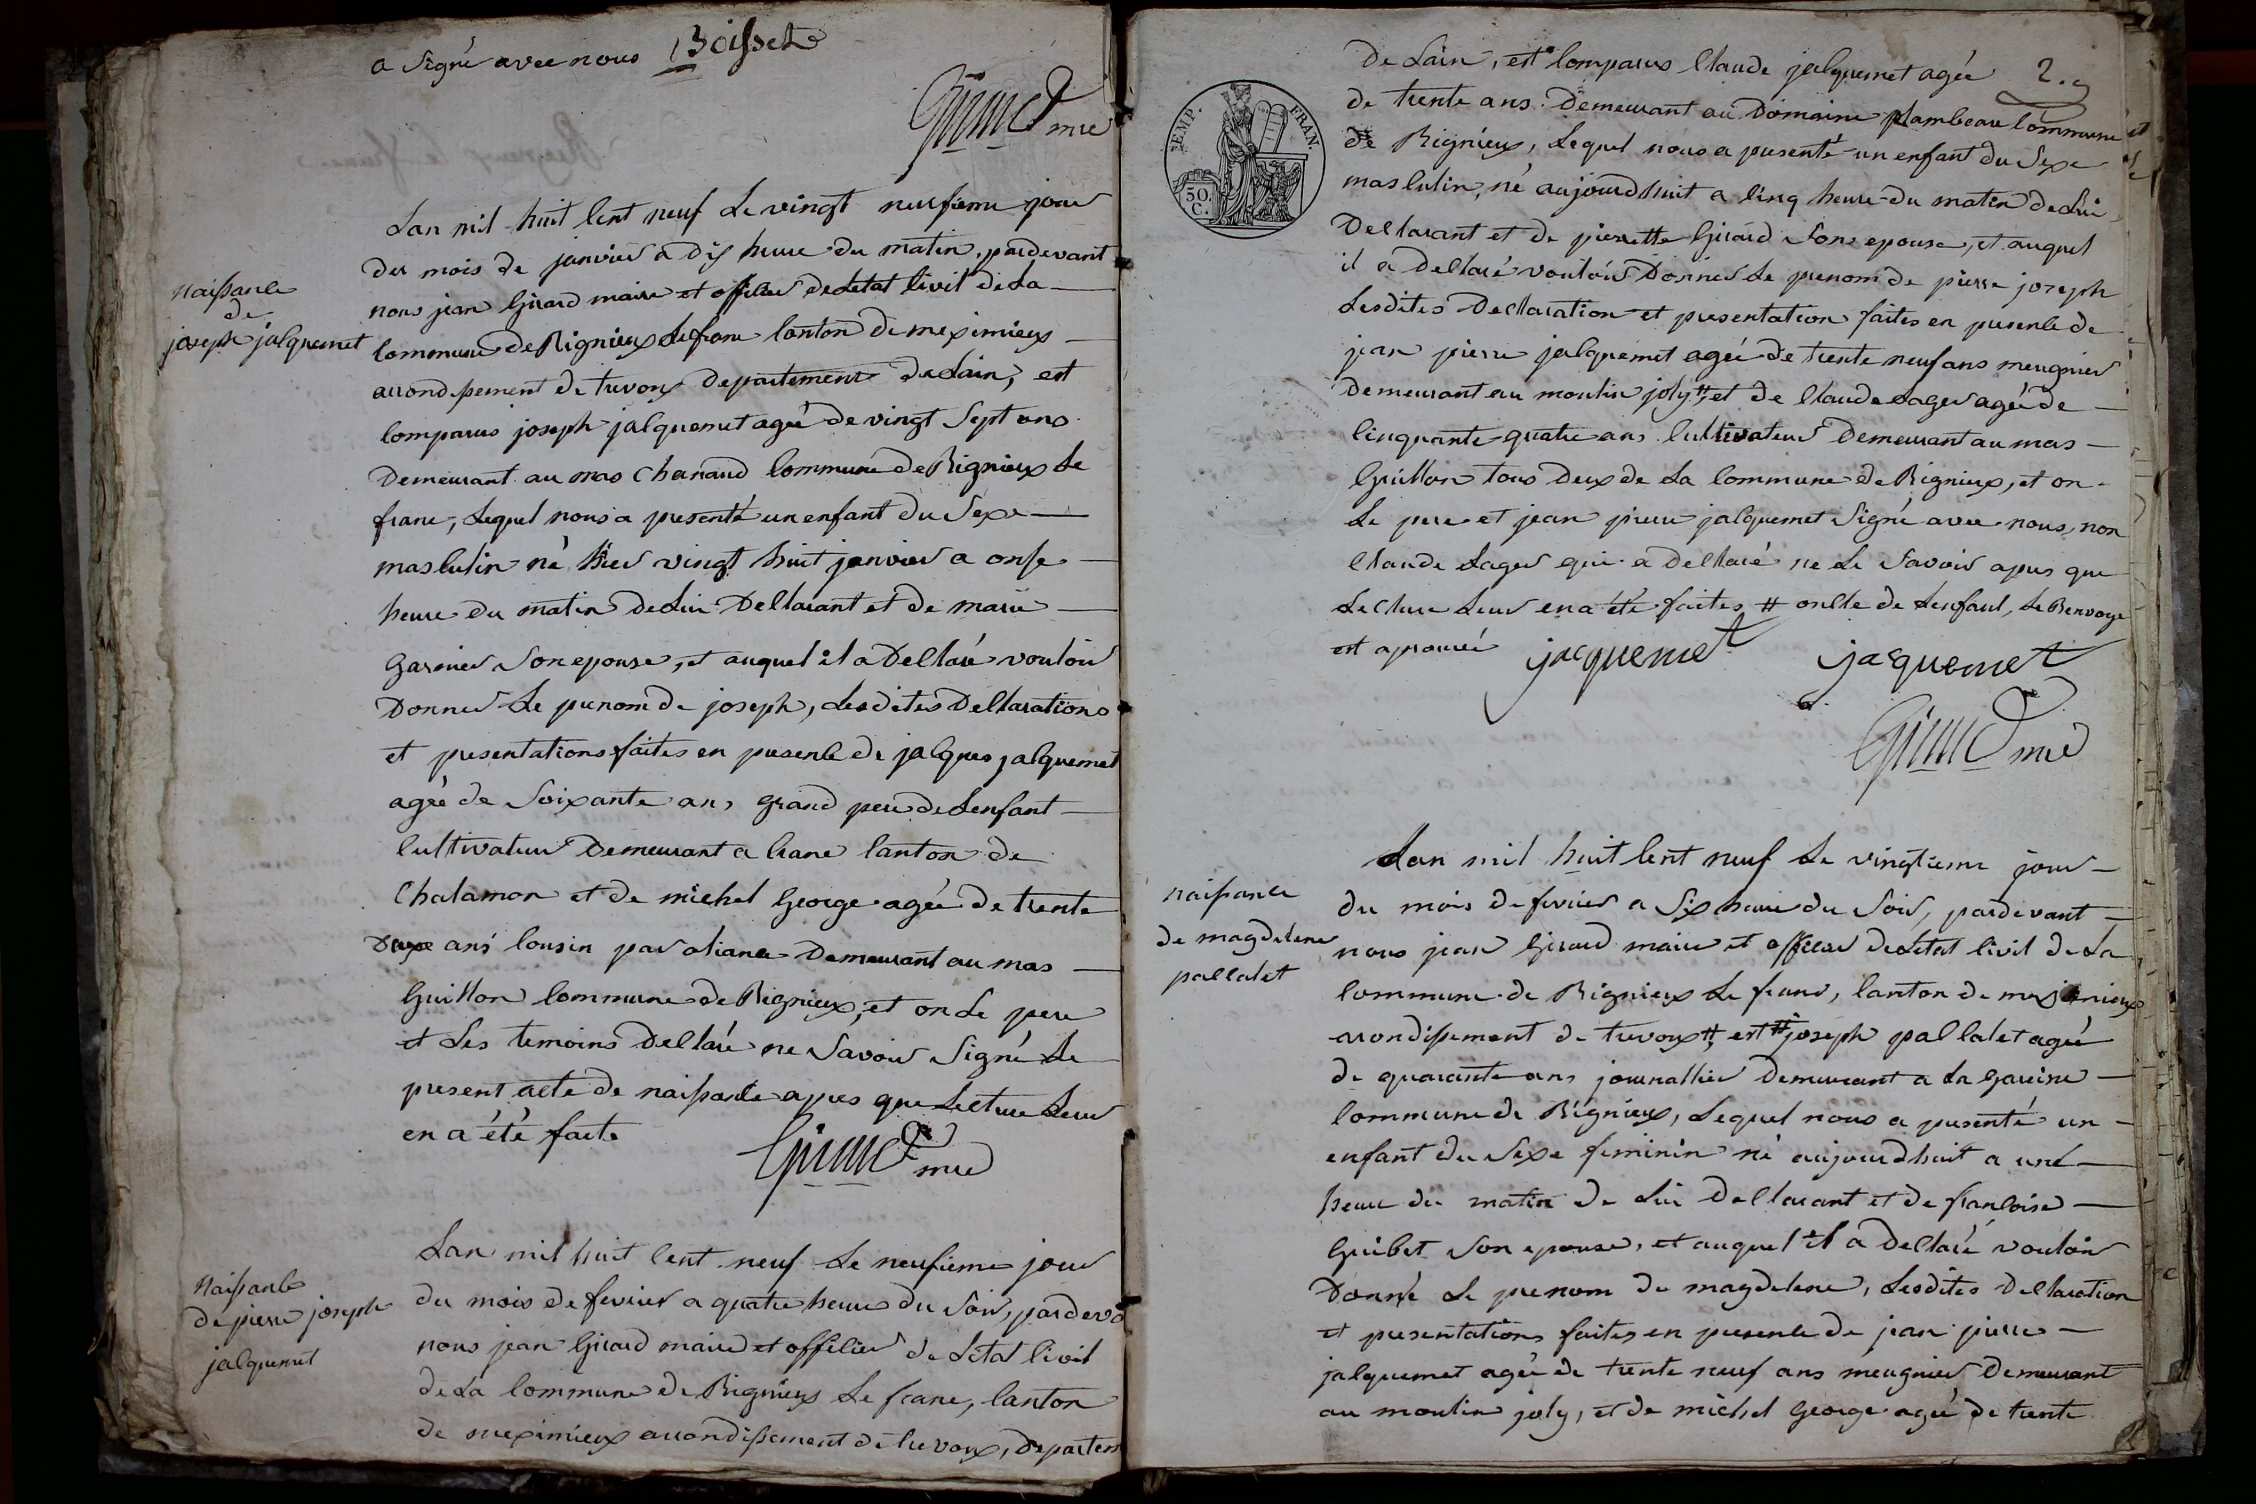 a Signé avec nous Boisset
Girard mre
Lan mil huit Cent neuf Le vingt neufieme jour
du mois de janvier a dix heure du matin, pardevant
nous jean Girard maire et officier de Letat Civil de La
naissance
de
joseph jacquemet
Commune de Rignieux Lefranc Canton de meximieux
arrondissement de trevoux departement de Lain, est
Comparus joseph jacquemet agée de vingt Sept ans
Demeurant au mas Chanaud Commune de Rignieux Le
franc, Lequel nous a presenté un enfant du Sexe
masculin né hier vingt huit janvier a onse
heure du matin de Lui Declarant et de marie
garnier Son epouse, et auquel il a Declaré vouloir
Donner Le prenom de joseph, Lesdites Declarations
et presentations faites en presence de jacques jacquemet
agée de Soixante ans, grand pere de Lenfant
Cultivateur Demeurant a Crans Canton de
Chalamon et de michel George agée de trente
Deux ans Cousin par aliance Demeurant au mas
Guillon Commune de Rignieux, et on Le pere
et Les temoins Declaré ne Savoir Signé Le
present acte de naissance apres que Lecture Leur
en a été faite
Girard mre
Lan mil huit Cent neuf Le neufieme jour
naissance
de pierre joseph
jacquemet
du mois de fevrier a quatre heure du Soir, pardeva
nous jean Girard maire et officier de Letat Civil
de La Commune de Rignieux Le franc, Canton
de meximieux arrondissement de trevoux, departem
2.
TEMP. FRAN.
50. C.
de Lain, est Comparus Claude jacquemet agée
de trente ans Demeurant au Domaine flambeau Commune
de Rignieux, Lequel nous a presenté un enfant du Sexe
masculin, né aujourdhuit a Cinq heure du matin de Lui
Declarant et de pierrette Girard Son epouse, et auquel
il a Declaré vouloir Donner Le prenom de pierre joseph
Lesdites Declaration et presentation faites en presence de
jean pierre jacquemet agée de trente neuf ans meugnier
Demeurant au moulin joly #, et de Claude Lager agée de
Cinquante quatre ans Cultivateur Demeurant au mas
Guillon tous deux de La Commune de Rignieux, et on
Le pere et jean pierre jacquemet Signé avec nous, non
Claude Lager qui a Declaré ne Le Savoir apres que
Lecture Leur en a été faites # oncle de Lenfant, Le Renvoye
est aprouvé
jacquemet jacquemet
Girard mre
Lan mil huit Cent neuf Le vingtieme jour
naissance
de magdelene
pallalet
du mois de fevrier a Six heure du Soir, pardevant
nous jean Girard maire et officier de Letat Civil de La
Commune de Rignieux Le franc, Canton de meximieux
arrondissement de trevoux #, est # joseph pallalet agée
de quarante ans journallier Demeurant a La Gareine
Commune de Rignieux, Lequel nous a presenté un
enfant du Sexe feminin né aujourdhuit a une
heure du matin de Lui Declarant et de francoise
Guibet Son epouse, et auquel il a Declaré vouloir
Donné Le prenom de magdelene, Lesdites Declaration
et presentations faites en presence de jean pierre
jacquemet agée de trente neuf ans meugnier Demeurant
au moulin joly, et de michel George agée de trente